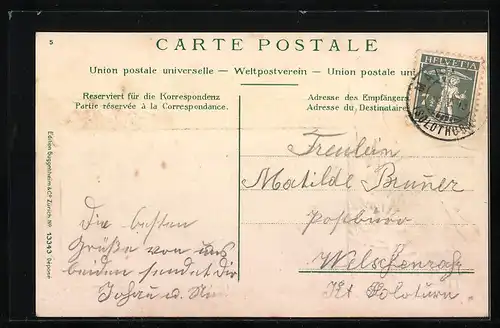 5
CARTE POSTALE
Union postale universelle — Weltpostverein — Union postale uni
Reserviert für die Korrespondenz
Partie réservée à la Correspondance.
Adresse des Empfängers
Adresse du Destinataire
HELVETIA
Edition Guggenheim & Co. Zürich, No 13343 Déposé
Die besten
Grüße von uns
beiden sendet dir
Freulein
Matilde Bruner
Postbüro
Welschenrohr
Kt Soloturn